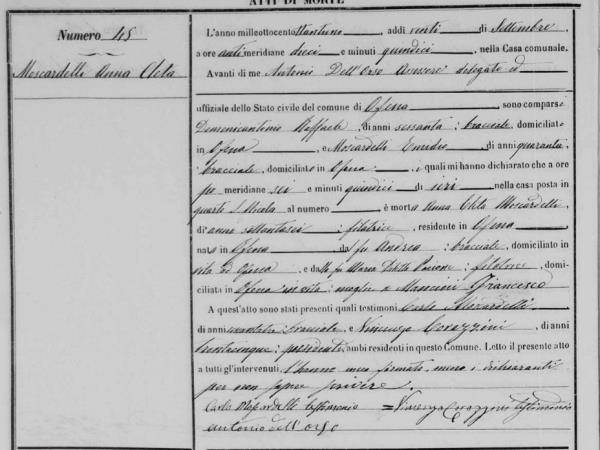 ATTI DI MORTE
Numero 45
Moscardelli Anna Cleta
L'anno milleottocentottantuno, addì venti di Settembre,
a ore antimeridiane dieci e minuti quindici, nella Casa comunale.
Avanti di me Antonio Dell'Orso Assessore delegato ed
uffiziale dello Stato civile del comune di Ofena, sono comparsi
Domenicantonio Raffaele, di anni sessanta, bracciale, domiciliato
in Ofena, e Moscardelli Emidio di anni quaranta
bracciale, domiciliato in Ofena, i quali mi hanno dichiarato che a ore
po meridiane sei e minuti quindici di ieri, nella casa posta in
quarto S. Nicola al numero, è morta Anna Cleta Moscardelli
di anni settantasei, filatrice, residente in Ofena
nata in Ofena, da fu Andrea, bracciale, domiciliato in
vita ad Ofena, e dalla fu Maria filatrice, domi-
ciliata in Ofena in vita, moglie a Mancini Francesco
A quest'atto sono stati presenti quali testimoni Carlo Moscardelli
di anni bracciale, e Vincenzo Corazzini, di anni
trentacinque, possidente, ambi residenti in questo Comune. Letto il presente atto
a tutti gl'intervenuti, l'hanno meco firmato, meno i dichiaranti
per non sapere scrivere.
Carlo Moscardelli testimonio = Vincenzo Corazzini testimonio
Antonio dell'orso